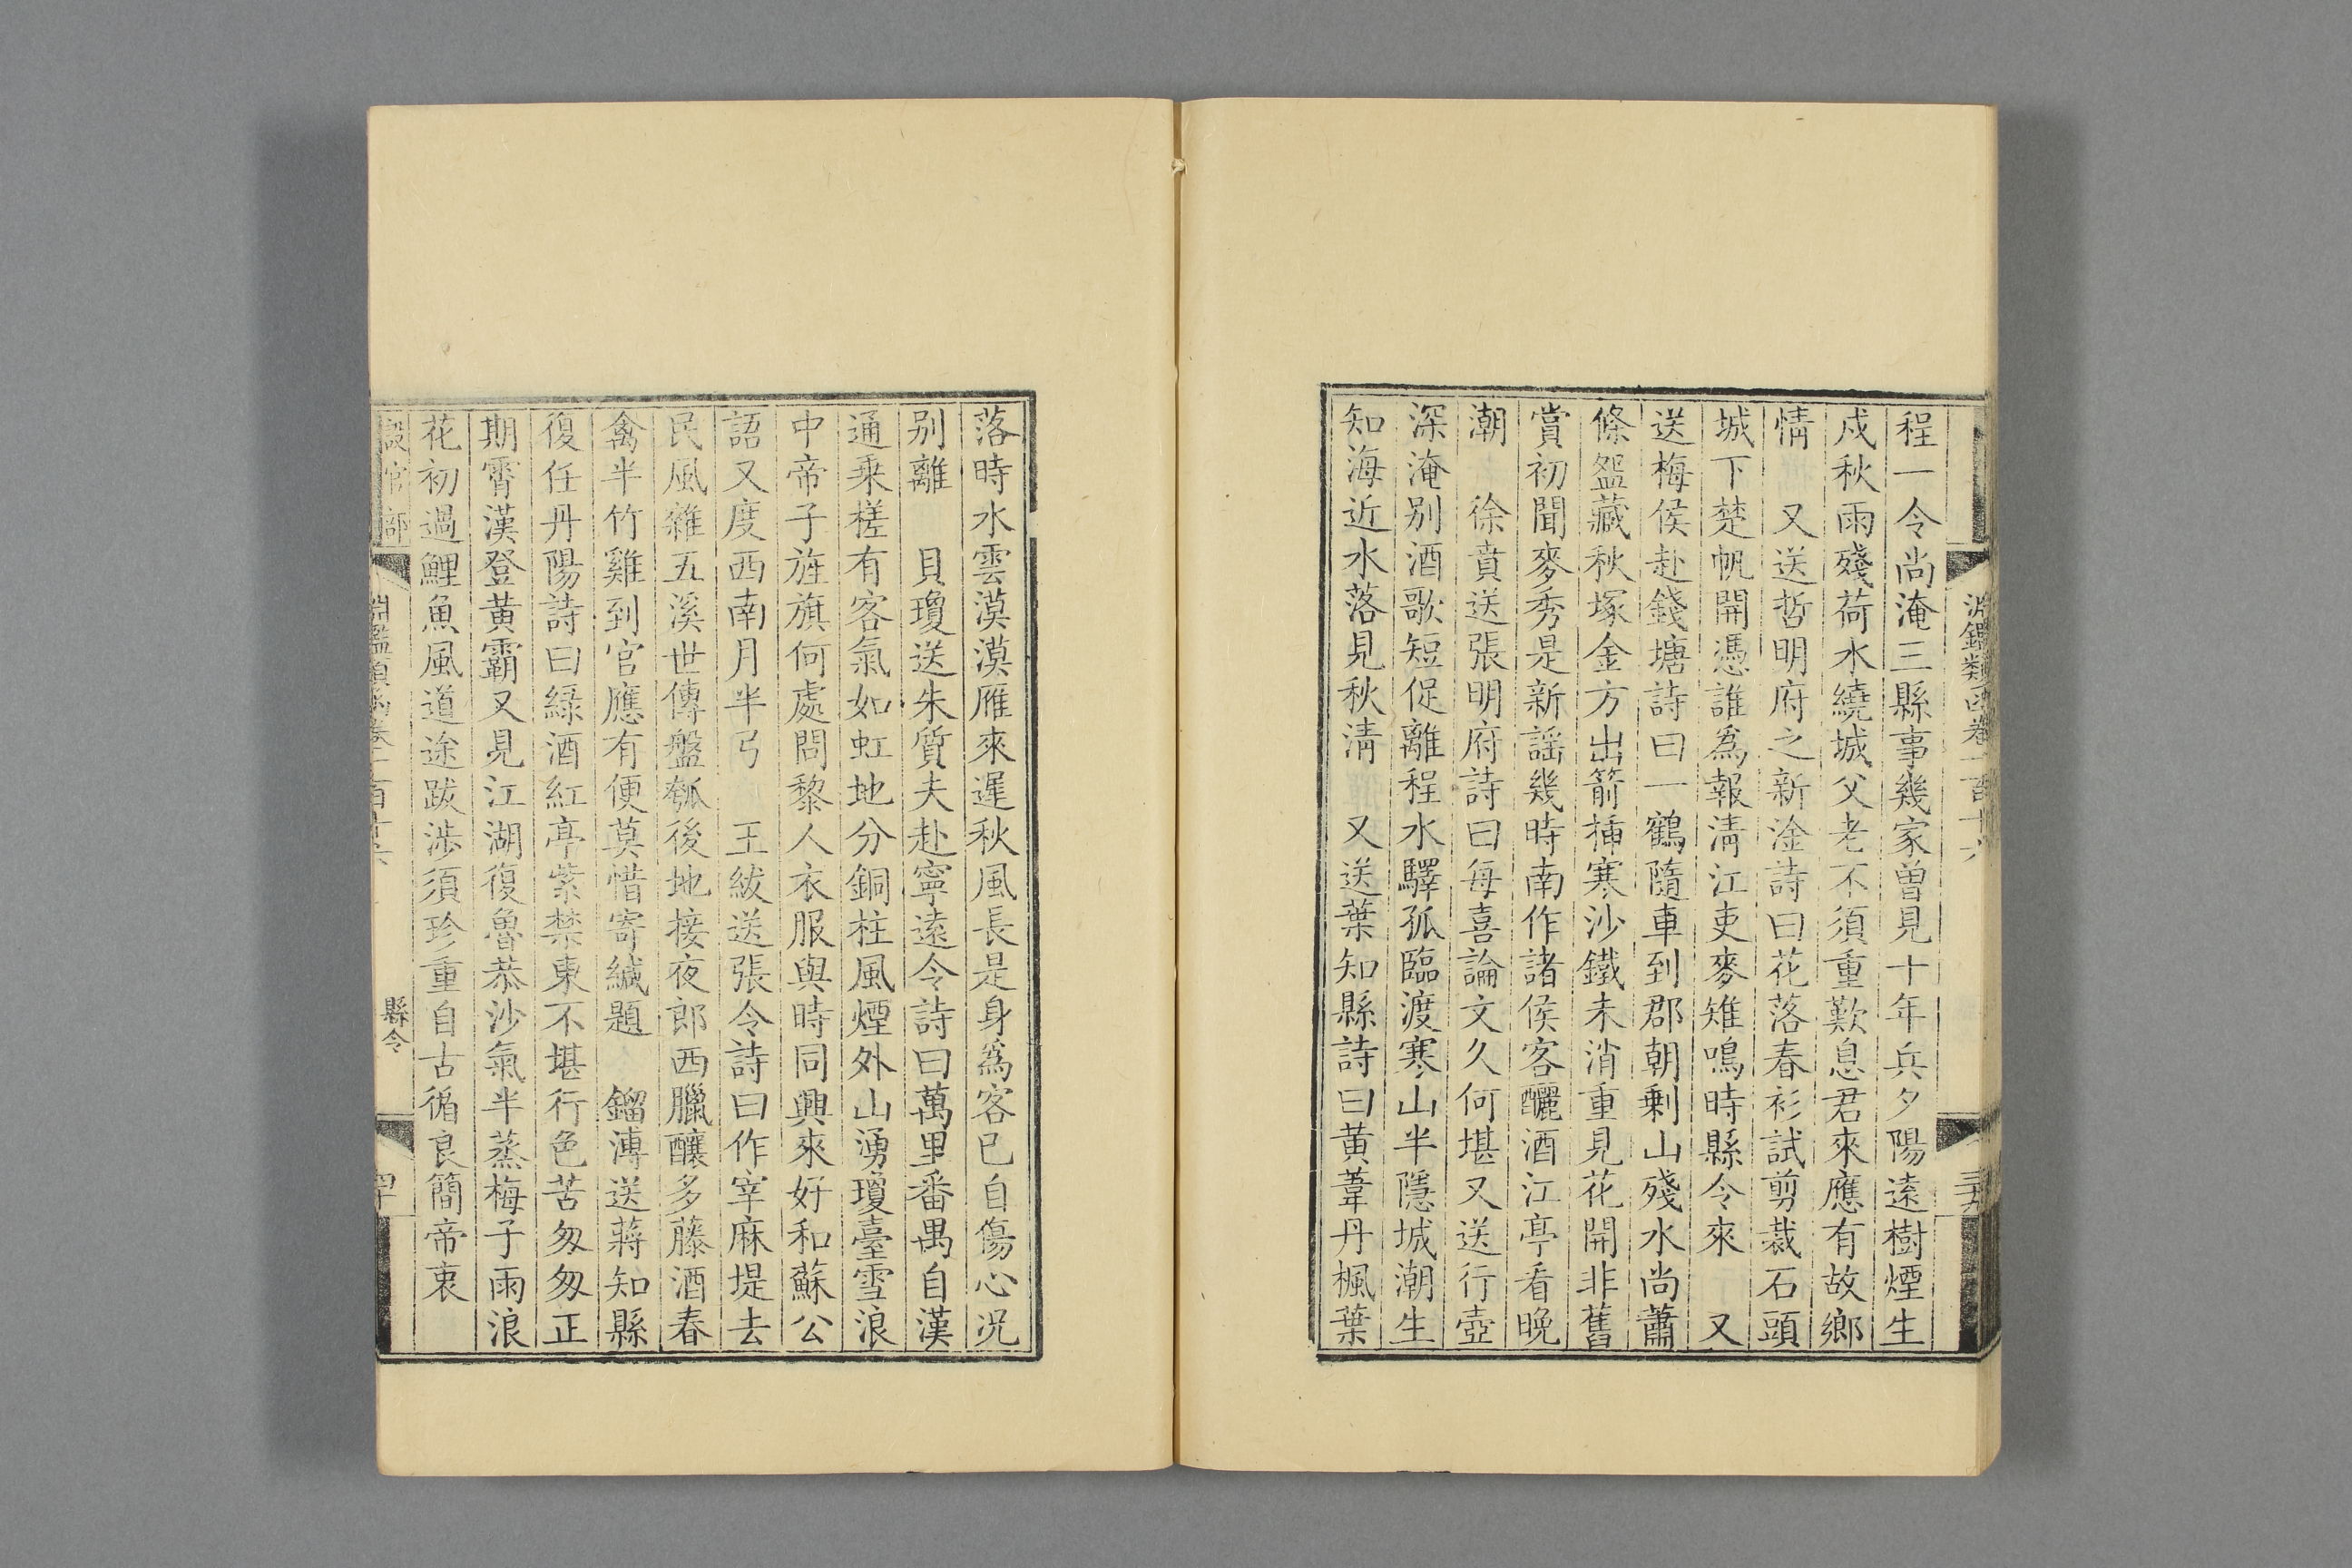 程一令尚淹三縣事幾家曾見十年兵夕陽遠樹煙生
戍秋雨殘荷水繞城父老不須重歎息君來應有故鄉
情　又送哲明府之新淦詩曰花落春衫試剪裁石頭
城下楚帆開憑誰爲報淸江吏麥雉鳴時縣令來　又
送梅侯赴錢塘詩曰一鶴隨車到郡朝剩山殘水尚蕭
條盌藏秋塚金方出箭揷寒沙鐵未消重見花開非舊
賞初聞麥秀是新謡幾時南作諸侯客釃酒江亭看晚
潮　徐賁送張明府詩曰每喜論文久何堪又送行壺
深淹别酒歌短促離程水驛孤臨渡寒山半隱城潮生
知海近水落見秋淸　又送葉知縣詩曰黄葦丹楓葉
落時水雲漠漠雁來遲秋風長是身爲客已自傷心况
别離　貝瓊送朱質夫赴寧遠令詩曰萬里番禺自漢
通乗槎有客氣如虹地分銅柱風煙外山湧瓊臺雪浪
中帝子旌旗何處問黎人衣服與時同興來好和蘇公
語又度西南月半弓　王紱送張令詩曰作宰麻堤去
民風雜五溪世傳盤瓠後地接夜郎西臘釀多藤酒春
禽半竹雞到官應有便莫惜寄緘題　鎦溥送蔣知縣
復任丹陽詩曰綠酒紅亭紫禁東不堪行色苦匆匆正
期霄漢登黄霸又見江湖復魯恭沙氣半蒸梅子雨浪
花初過鯉魚風道途跋渉須珍重自古循良簡帝衷
設官部
淵鑑類函卷一百十六
縣令